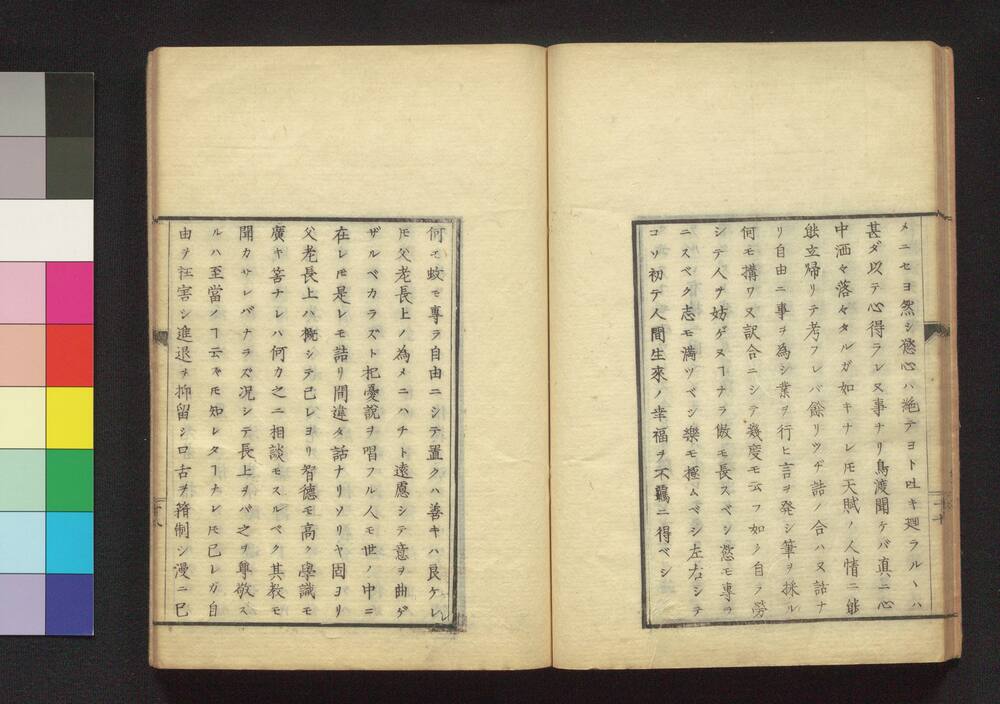 メニセヨ然シ慾心ハ絶テヨト吐キ廻ラルヽハ
甚ダ以テ心得ラレヌ事ナリ鳥渡聞ケバ真ニ心
中洒々落々タルガ如キナレ𪜈天賦ノ人情ニ能
能立帰リテ考フレバ餘リツヂ誥ノ合ハヌ話ナ
リ自由ニ事ヲ為シ業ヲ行ヒ言ヲ発シ筆ヲ採ル
何モ搆ワヌ訳合ニシテ幾度モ云フ如ク自ラ勞
シテ人ヲ妨ゲヌヿナラ倣モ長スベシ慾モ専ラ
ニスベク志モ満ツベシ樂モ極ムベシ左右シテ
コソ初テ人間生來ノ幸福ヲ不羈ニ得ベシ
何モ蚊モ專ラ自由ニシテ置クハ善キハ良ケレ
𪜈父老長上ノ為メニハチト遠慮シテ意ヲ曲ゲ
ザルベカラズト杞憂說ヲ唱フル人モ世ノ中ニ
在レ𪜈是レモ詰リ間違タ話ナリソリヤ固ヨリ
父老長上ハ概シテ己レヨリ智德モ高ク學識モ
廣キ筈ナレハ何カ之ニ相談モスルベク其教モ
聞カサレバナラズ况シテ長上ヲバ之ヲ尊敬ス
ルハ至當ノヿ云ズモ知レタヿナレ𪜈己レガ自
由ヲ枉害シ進退ヲ抑留シ口古ヲ箝制シ漫ニ己